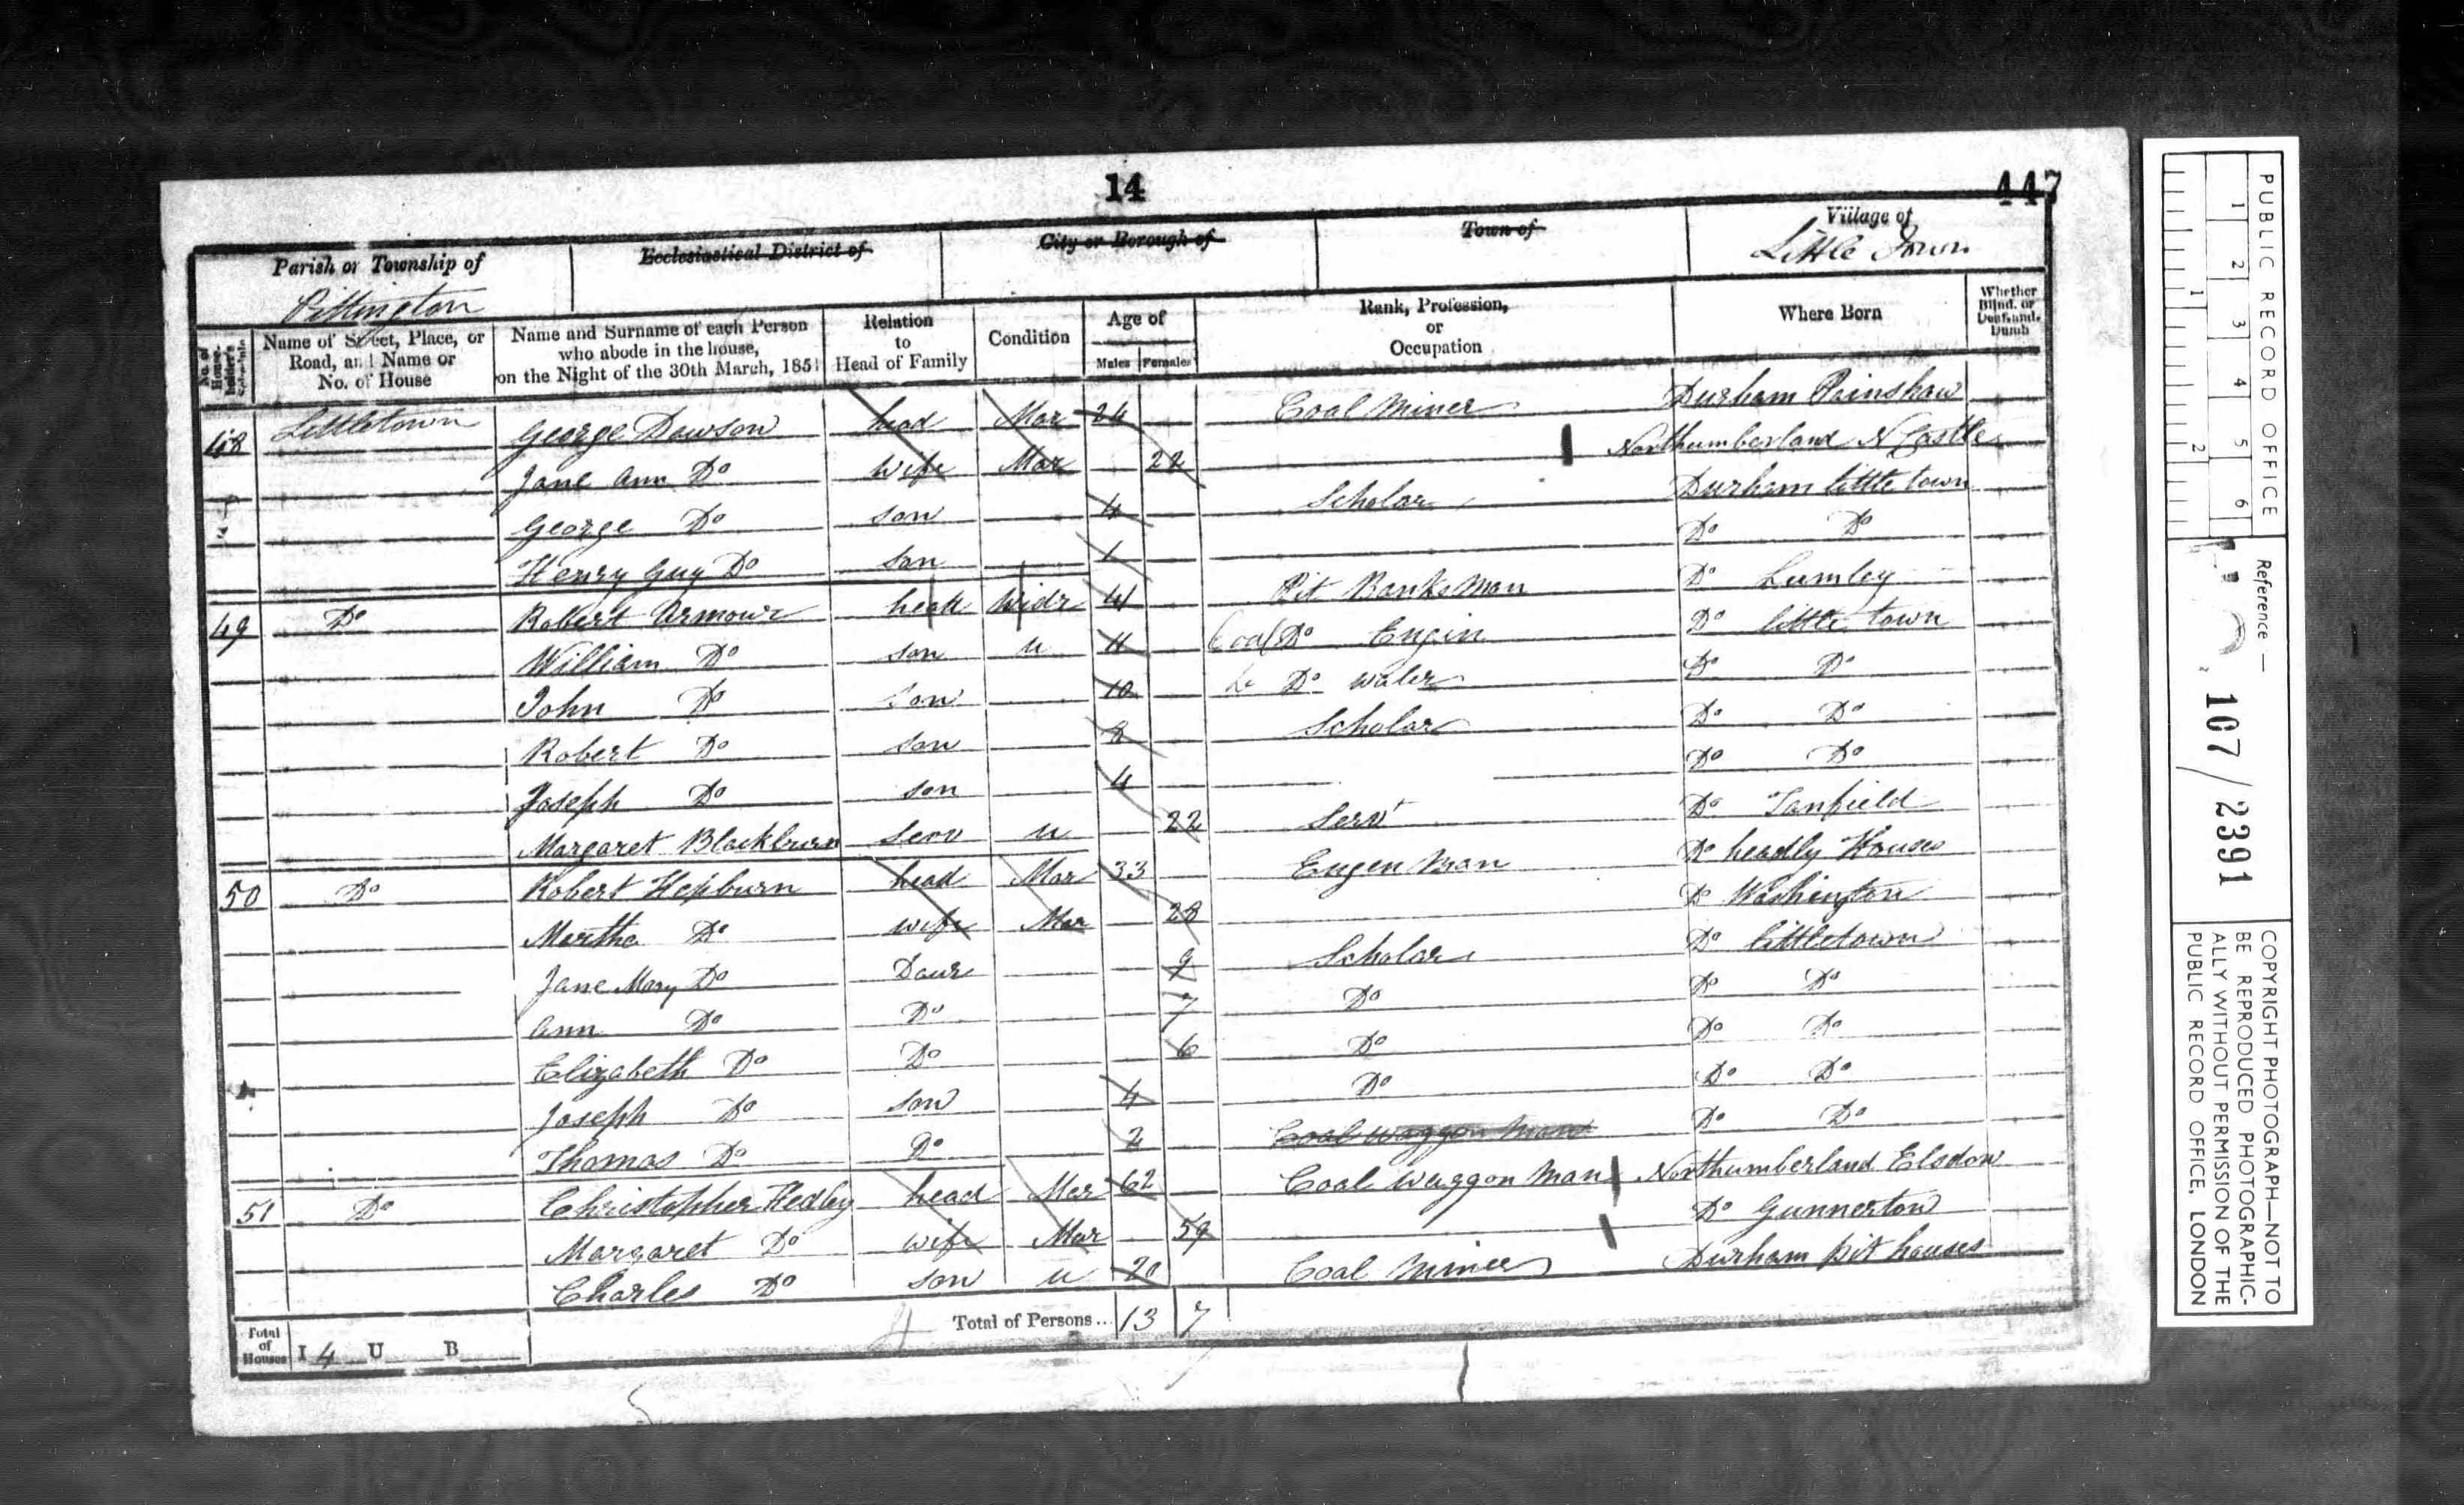 14
447
Parish or Township of
Pittington
Ecclesiastical District of
City or Borough of
Town of
Village of
Little Town
No. of House-holder's Schedule
Name of Street, Place, or Road, and Name or No. of House
Name and Surname of each Person who abode in the house, on the Night of the 30th March, 1851
Relation to Head of Family
Condition
Age of
Males Females
Rank, Profession, or Occupation
Where Born
Whether Blind, or Deaf-and-Dumb
48 Littletown George Dawson head Mar 24 Coal Miner Durham Painshaw
Jane Ann Do wife Mar 22 Northumberland N Castle
George Do son 4 Scholar Durham little town
Henry Guy Do son 1 Do Do
49 Do Robert Armour head Widr 41 Pit Banksman Do Lumley
William Do son u 11 Coal Do Engin Do little town
John Do son 10 Do Do Do
Robert Do son 8 Scholar Do Do
Joseph Do son 4 Do Do
Margaret Blackburn Serv u 22 Servt Do Tanfield
50 Do Robert Hepburn head Mar 33 Engen Man Do headly Houses
Martha Do wife Mar 28 Do Washington
Jane Mary Do Daur 9 Scholar Do littletown
Ann Do Do 7 Do Do Do
Elizabeth Do Do 6 Do Do Do
Joseph Do son 4 Do Do Do
Thomas Do Do 2 Coal Waggon Man Do Do
51 Do Christopher Hedley head Mar 62 Coal Waggon Man Northumberland Elsdon
Margaret Do wife Mar 59 Do Gunnerton
Charles Do son u 20 Coal Miner Durham pit houses
Total of Houses I 4 U B
4
Total of Persons... 13 7
PUBLIC RECORD OFFICE
1 2 3 4 5 6
1 2
Reference —
107/2391
COPYRIGHT PHOTOGRAPH—NOT TO
BE REPRODUCED PHOTOGRAPHIC-
ALLY WITHOUT PERMISSION OF THE
PUBLIC RECORD OFFICE, LONDON